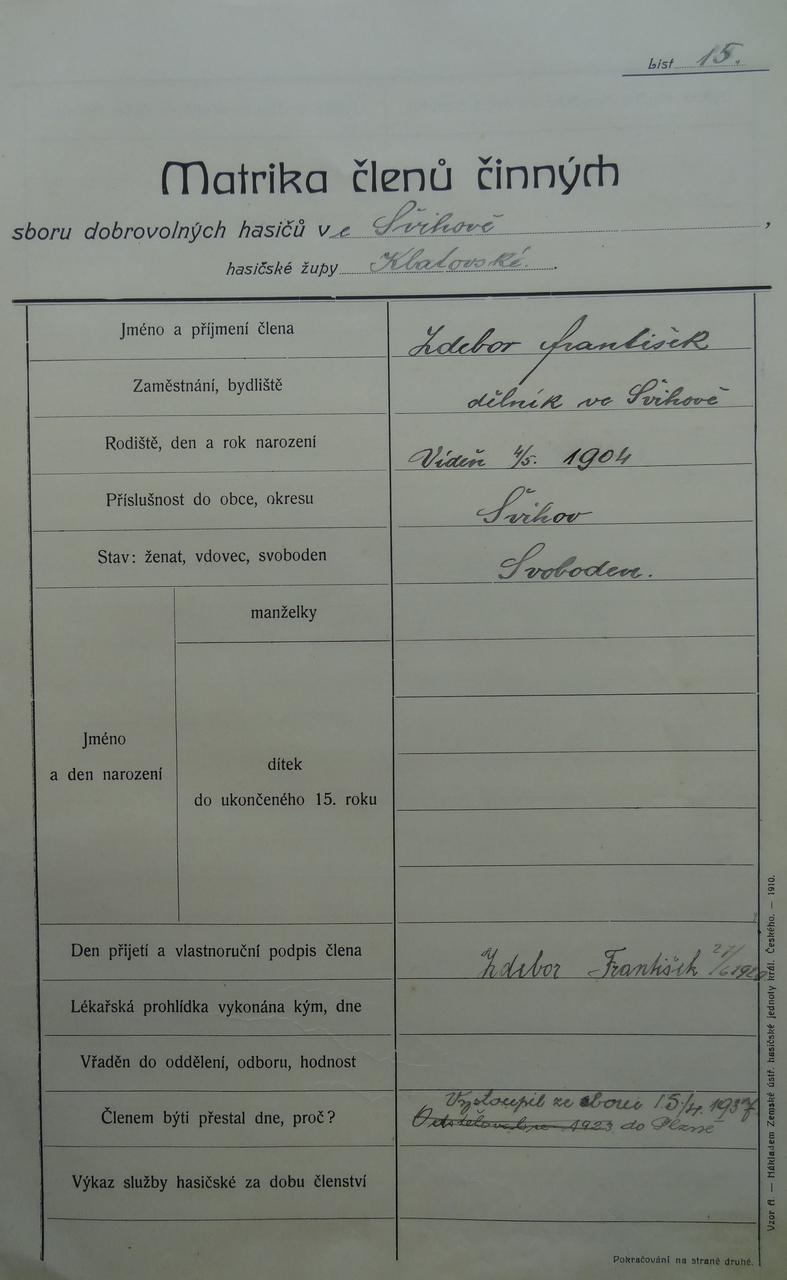 List 15.
Matrika členů činných
sboru dobrovolných hasičů ve Švihově,
hasičské župy Klatovské.
Jméno a příjmení člena Zdebor František
Zaměstnání, bydliště dělník ve Švihově
Rodiště, den a rok narození Vídeň 4/5. 1904
Příslušnost do obce, okresu Švihov
Stav: ženat, vdovec, svoboden Svoboden.
manželky
Jméno
a den narození
dítek
do ukončeného 15. roku
Den přijetí a vlastnoruční podpis člena Zdebor František
Lékařská prohlídka vykonána kým, dne
Vřaděn do oddělení, odboru, hodnost
Vystoupil ze sboru 15/4. 1937
Členem býti přestal dne, proč? 1923 do Plzně
Výkaz služby hasičské za dobu členství
Pokračování na straně druhé.
Vzor fl. — Nákladem Zemské ústř. hasičské jednoty král. Českého. — 1910.